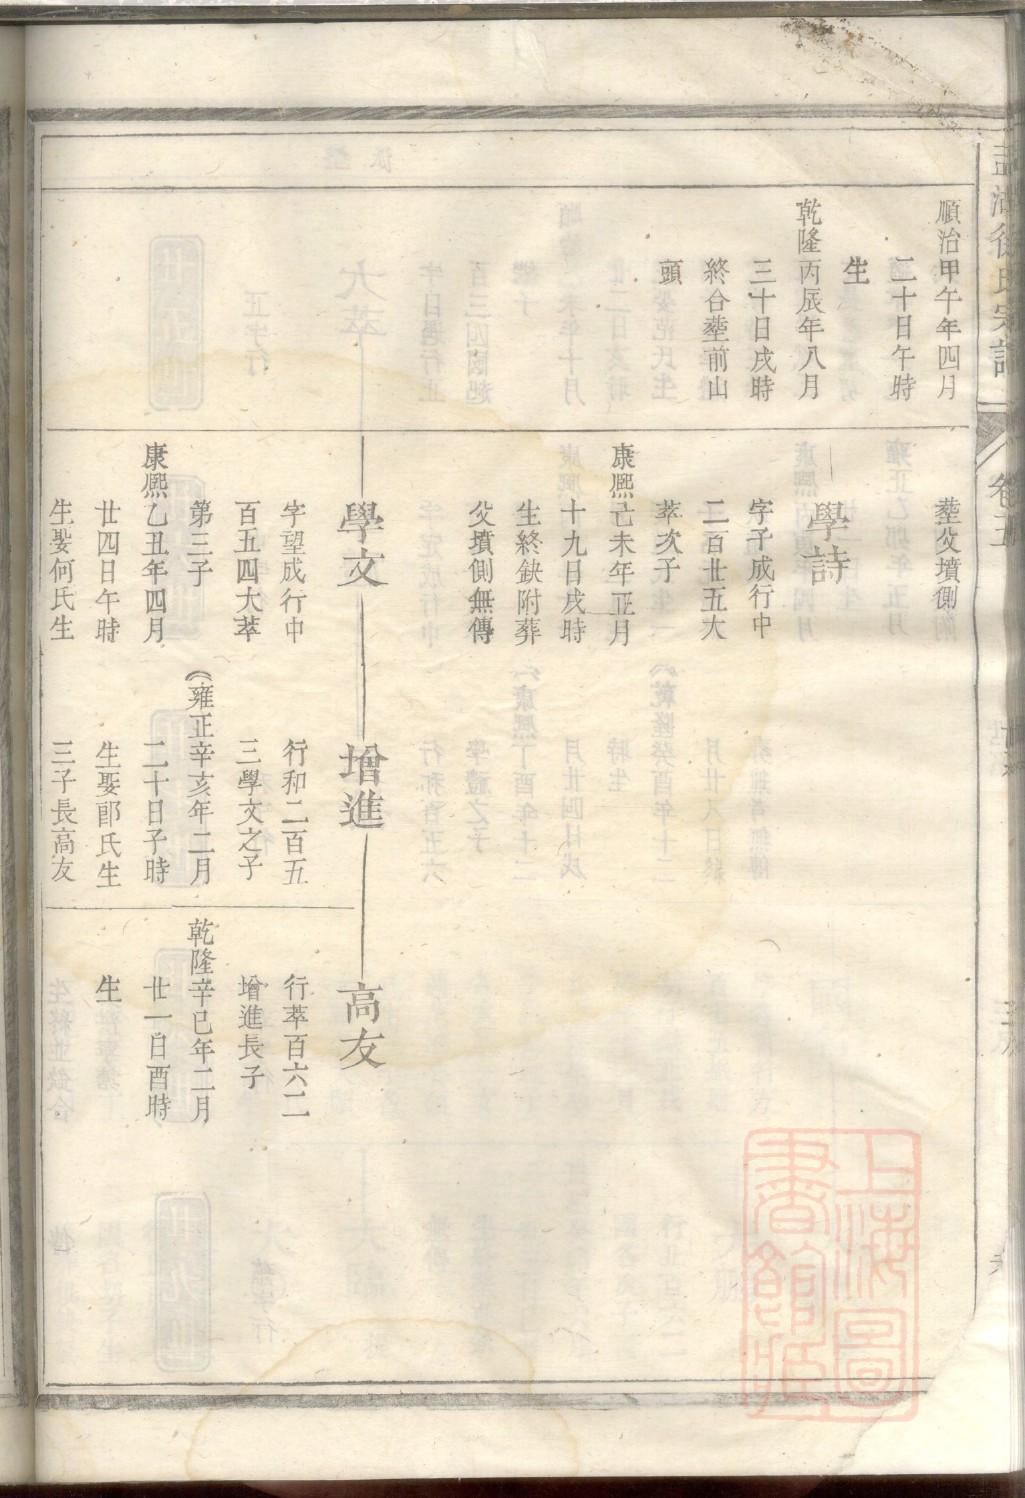 順治甲午年四月
二十日午時
生
乾隆丙辰年八月
三十日戌時
終合塟前山
頭
塟父墳側附
學詩
字子成行中
二百廿五大
萃次子
康熙己未年正月
十九日戌時
生終缺附葬
父墳側無傳
學文
字望成行中
百五四大萃
第三子
康熙乙丑年四月
廿四日午時
生娶何氏生
增進
行和二百五
三學文之子
雍正辛亥年二月
二十日子時
生娶郎氏生
三子長高友
高友
行萃百六二
增進長子
乾隆辛巳年二月
廿一日酉時
生
徐氏宗譜
卷五
上海圖
書館藏